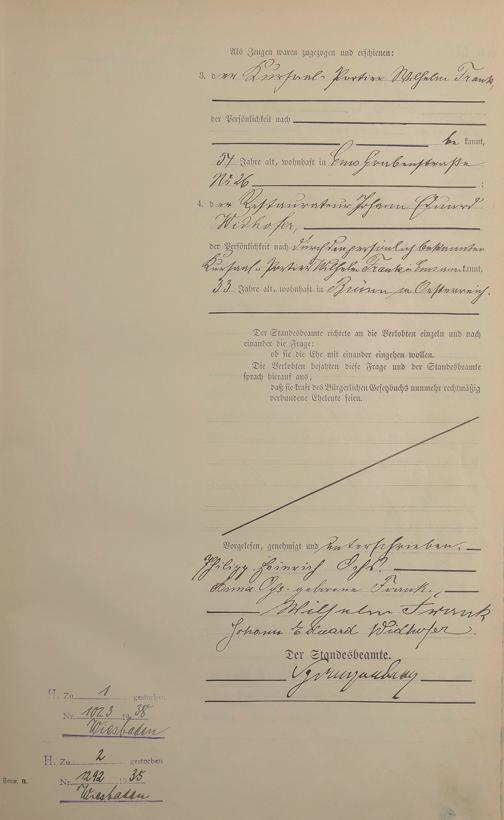 Als Zeugen waren zugezogen und erschienen:
3. der Kursaal-Portier Wilhelm Frank,
der Persönlichkeit nach
be kannt,
57 Jahre alt, wohnhaft in Ems Grabenstraße
Nr. 26 ;
4. der Restaurateur Johann Eduard
Widhofer,
der Persönlichkeit nach durch den persönlich bekannten
Kursaal-Portier Wilhelm Frank in Ems anerkannt,
33 Jahre alt, wohnhaft in Brünn in Oesterreich.
Der Standesbeamte richtete an die Verlobten einzeln und nach
einander die Frage:
ob sie die Ehe mit einander eingehen wollen.
Die Verlobten bejahten diese Frage und der Standesbeamte
sprach hierauf aus,
daß sie kraft des Bürgerlichen Gesetzbuchs nunmehr rechtmäßig
verbundene Eheleute seien.
Vorgelesen, genehmigt und unterschrieben.
Philipp Heinrich Ochs.
Anna Ochs geborene Frank.
Wilhelm Frank
Johann Eduard Widhofer.
Der Standesbeamte.
H. Zu 1 gestorben
Nr. 1023 1938
Wiesbaden
H. Zu 2 gestorben
Form. B. Nr. 1292 1935
Wiesbaden